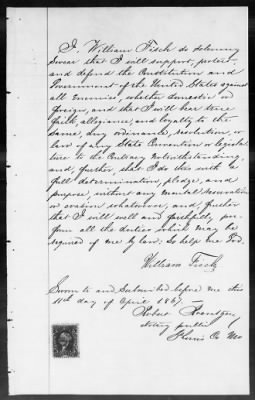 I, William Fisch do solemnly
Swear that I will support, protect,
and defend the Constitution and
Government of the United States against
all Enemies, whether domestic or
foreign, and that I will bear true
faith, allegiance, and loyalty to the
same, any ordinance, resolution, or
law of any State Convention or legisla-
ture to the Contrary Notwithstanding,
and, further, that I do this with a
full determination, pledge, and
purpose, without any mental reservation
or evasion whatsoever, and, further
that I will well and faithfully, per-
form all the duties which may be
required of me by law. So help me God.
William Fisch
Sworn to and Subscribed before me this
11th day of April 186
Robert
Notary public
Co Mo